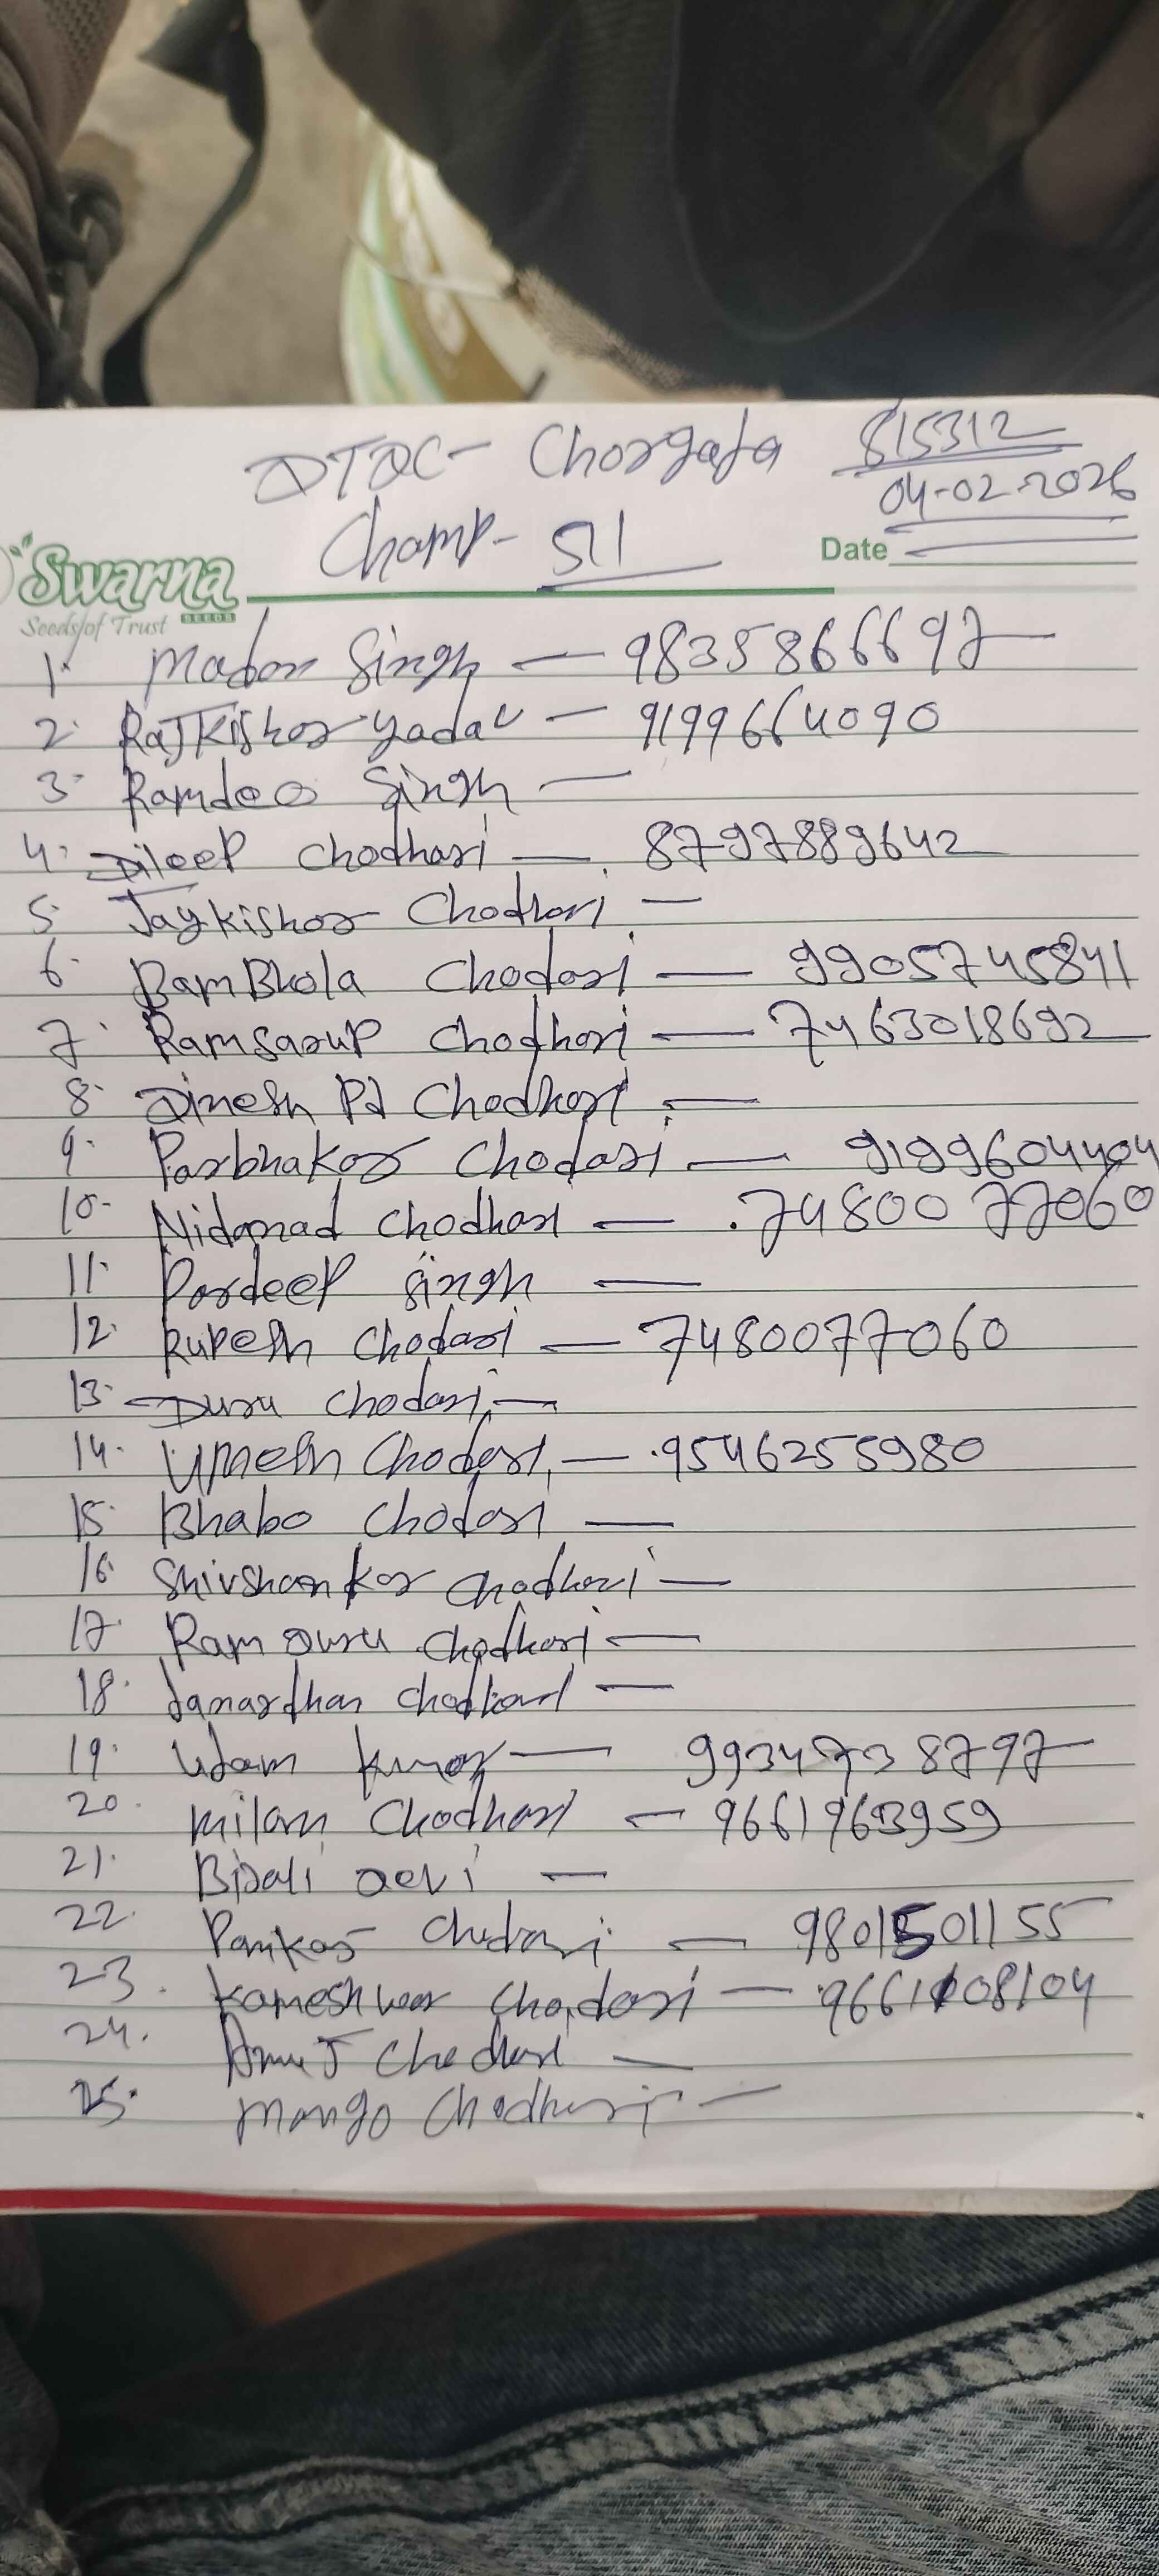 DTDC- Chorgata 815312
04-02-2026
Champ- 511
Swarna
SEEDS
Seeds of Trust
Date
1. Madan Singh — 9835866697
2. RajKishor yadav — 9199664090
3. Ramdeo Singh —
4. Dileep Chodhari — 8797889642
5. Jaykishor Chodhari —
6. BamBhola Chodari — 9905745841
7. Ramsarup Chodhari — 7463018692
8. Dinesh Pd Chodhari —
9. Parbhakar Chodari — 9199604404
10. Nidanad Chodhari — 7480077060
11. Pardeep Singh —
12. Rupesh Chodari — 7480077060
13. Duru Chodari —
14. Umesh Chodari — 9546255980
15. Bhabo Chodari —
16. Shivshankar Chodhari —
17. Ram Duru Chodhari —
18. Janardhan Chodhari —
19. Utam Kumar — 9934738797
20. Milan Chodhari — 9661963959
21. Bijali Devi —
22. Pankaj Chodari — 9801501155
23. Kameshwar Chodari — 9661108104
24. Chodhari —
25. Mango Chodhari —